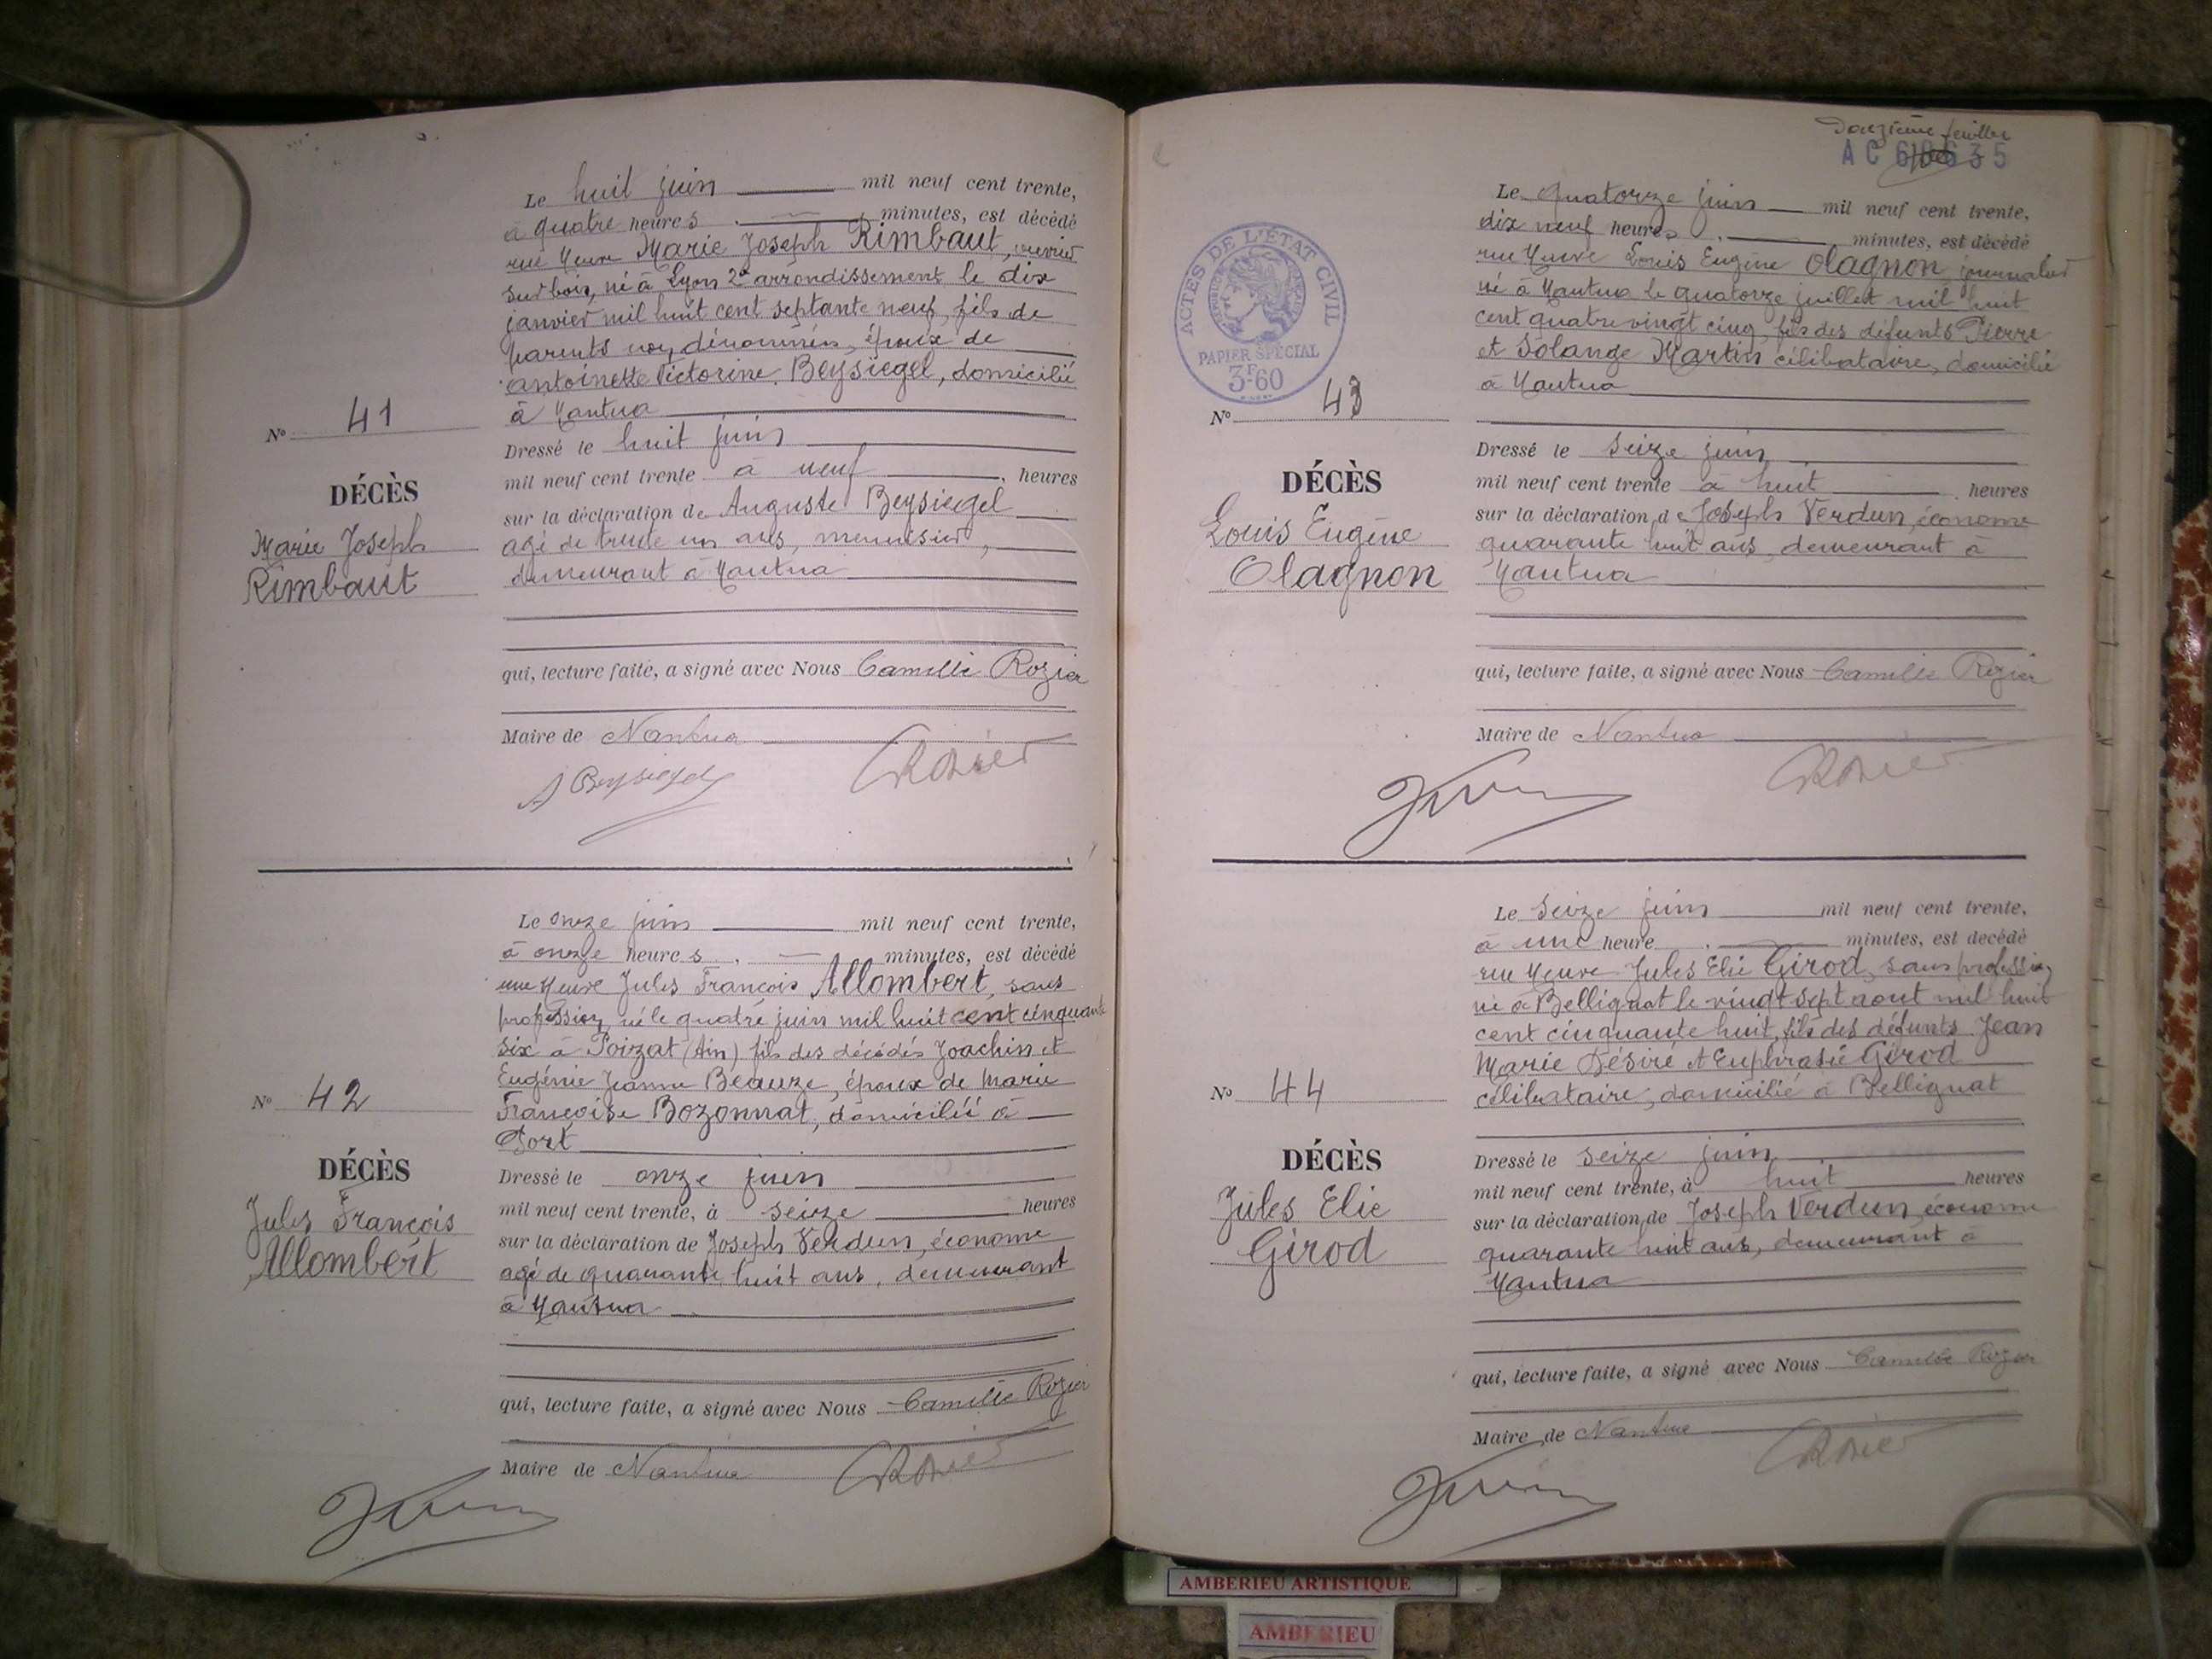 Le huit juin mil neuf cent trente,
à quatre heures minutes, est décédé
rue Neuve Marie Joseph Rimbaut, ouvrier
sur bois, né à Lyon 2e arrondissement le dix
janvier mil huit cent septante neuf, fils de
parents non dénommés, époux de
Antoinette Victorine Beysiegel, domicilié
à Nantua
No 41
Dressé le huit juin
mil neuf cent trente à neuf heures
DÉCÈS
sur la déclaration de Auguste Beysiegel
Marie Joseph
agé de trente un ans, menuisier,
Rimbaut
demeurant à Nantua
qui, lecture faite, a signé avec Nous Camille Rozier
Maire de Nantua
A Beysiegel CRozier
Le onze juin mil neuf cent trente,
à onze heures minutes, est décédé
rue Neuve Jules François Allombert, sans
profession, né le quatre juin mil huit cent cinquante
six à Poizat (Ain) fils des décédés Joachin et
Eugénie Jeanne Béauze, époux de Marie
No 42
Françoise Bozonnat, domicilié à
Port
DÉCÈS
Dressé le onze juin
mil neuf cent trente, à seize heures
Jules François
sur la déclaration de Joseph Verdun, économe
Allombert
agé de quarante huit ans, demeurant
à Nantua
qui, lecture faite, a signé avec Nous Camille Rozier
Maire de Nantua CRozier
Douzième feuillet
AC 635
Le quatorze juin mil neuf cent trente,
dix neuf heures minutes, est décédé
rue Neuve Louis Eugène Olagnon journalier
né à Nantua le quatorze juillet mil huit
cent quatre vingt cinq, fils des défunts Pierre
et Solange Martin célibataire, domicilié
à Nantua
ACTES DE L'ÉTAT CIVIL
PAPIER SPÉCIAL
3F60
No 43
Dressé le seize juin
DÉCÈS
mil neuf cent trente à huit heures
sur la déclaration de Joseph Verdun, économe
Louis Eugène
quarante huit ans, demeurant à
Olagnon
Nantua
qui, lecture faite, a signé avec Nous Camille Rozier
Maire de Nantua
CRozier
Le seize juin mil neuf cent trente,
à une heure minutes, est decédé
rue Neuve Jules Elie Girod, sans profession,
né à Bellignat le vingt sept aout mil huit
cent cinquante huit, fils des défunts Jean
Marie Désiré et Euphrasie Girod
No 44
célibataire, domicilié à Bellignat
DÉCÈS
Dressé le seize juin
mil neuf cent trente, à huit heures
Jules Elie
sur la déclaration de Joseph Verdun, économe
Girod
quarante huit ans, demeurant à
Nantua
qui, lecture faite, a signé avec Nous Camille Rozier
Maire de Nantua
CRozier
AMBERIEU ARTISTIQUE
AMBERIEU